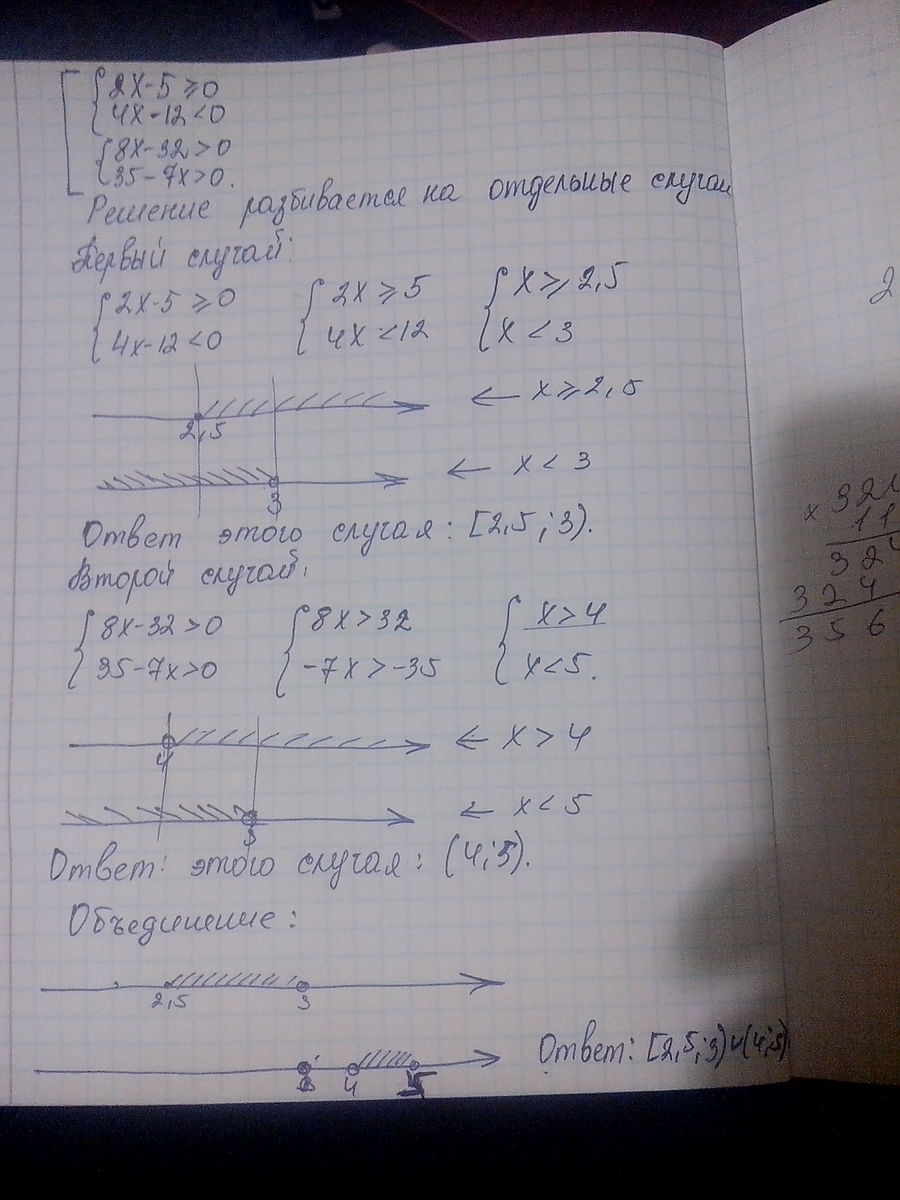 2x-5≥0
4x-12<0
8x-32>0
35-7x>0.
Решение разбивается на отдельные случаи
Первый случай:
2x-5≥0 2x≥5 x≥2,5
4x-12<0 4x<12 x<3
2,5 ← x≥2,5
3 ← x<3
Ответ этого случая: [2,5;3).
Второй случай:
8x-32>0 8x>32 x>4
35-7x>0 -7x>-35 x<5.
4 ← x>4
5 ← x<5
Ответ: этого случая: (4;5).
Объединение:
2,5 3
3 4 5 Ответ: [2,5;3)∪(4;5)
2
x 324
11
324
324
356